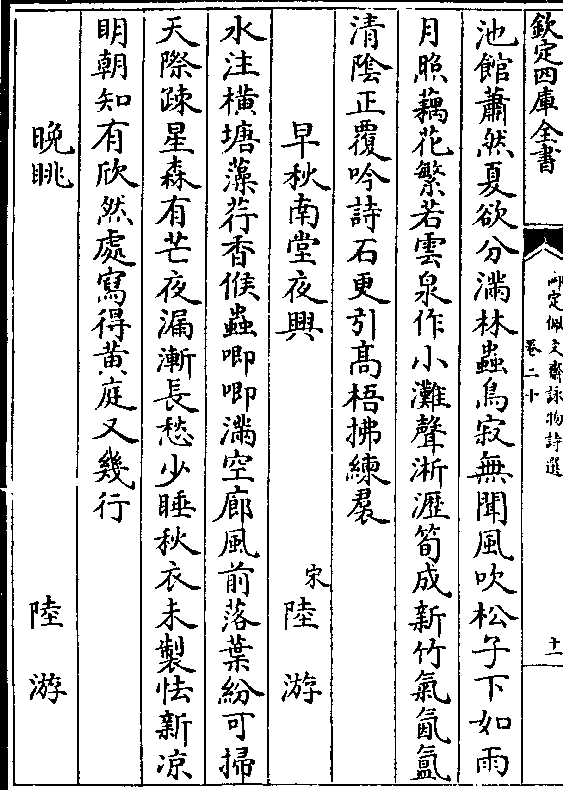 欽定四庫全書
御定佩文齋詠物詩選
卷二十
十一
池館蕭然夏欲分滿林蟲鳥寂無聞風吹松子下如雨
月照藕花繁若雲泉作小灘聲淅瀝筍成新竹氣氤氳
清陰正覆吟詩石更引髙梧拂練裠
早秋南堂夜興
宋陸游
水注横塘藻荇香候蟲唧唧滿空廊風前落葉紛可掃
天際疎星森有芒夜漏漸長愁少睡秋衣未製怯新凉
明朝知有欣然處寫得黄庭又幾行
晚眺
陸游